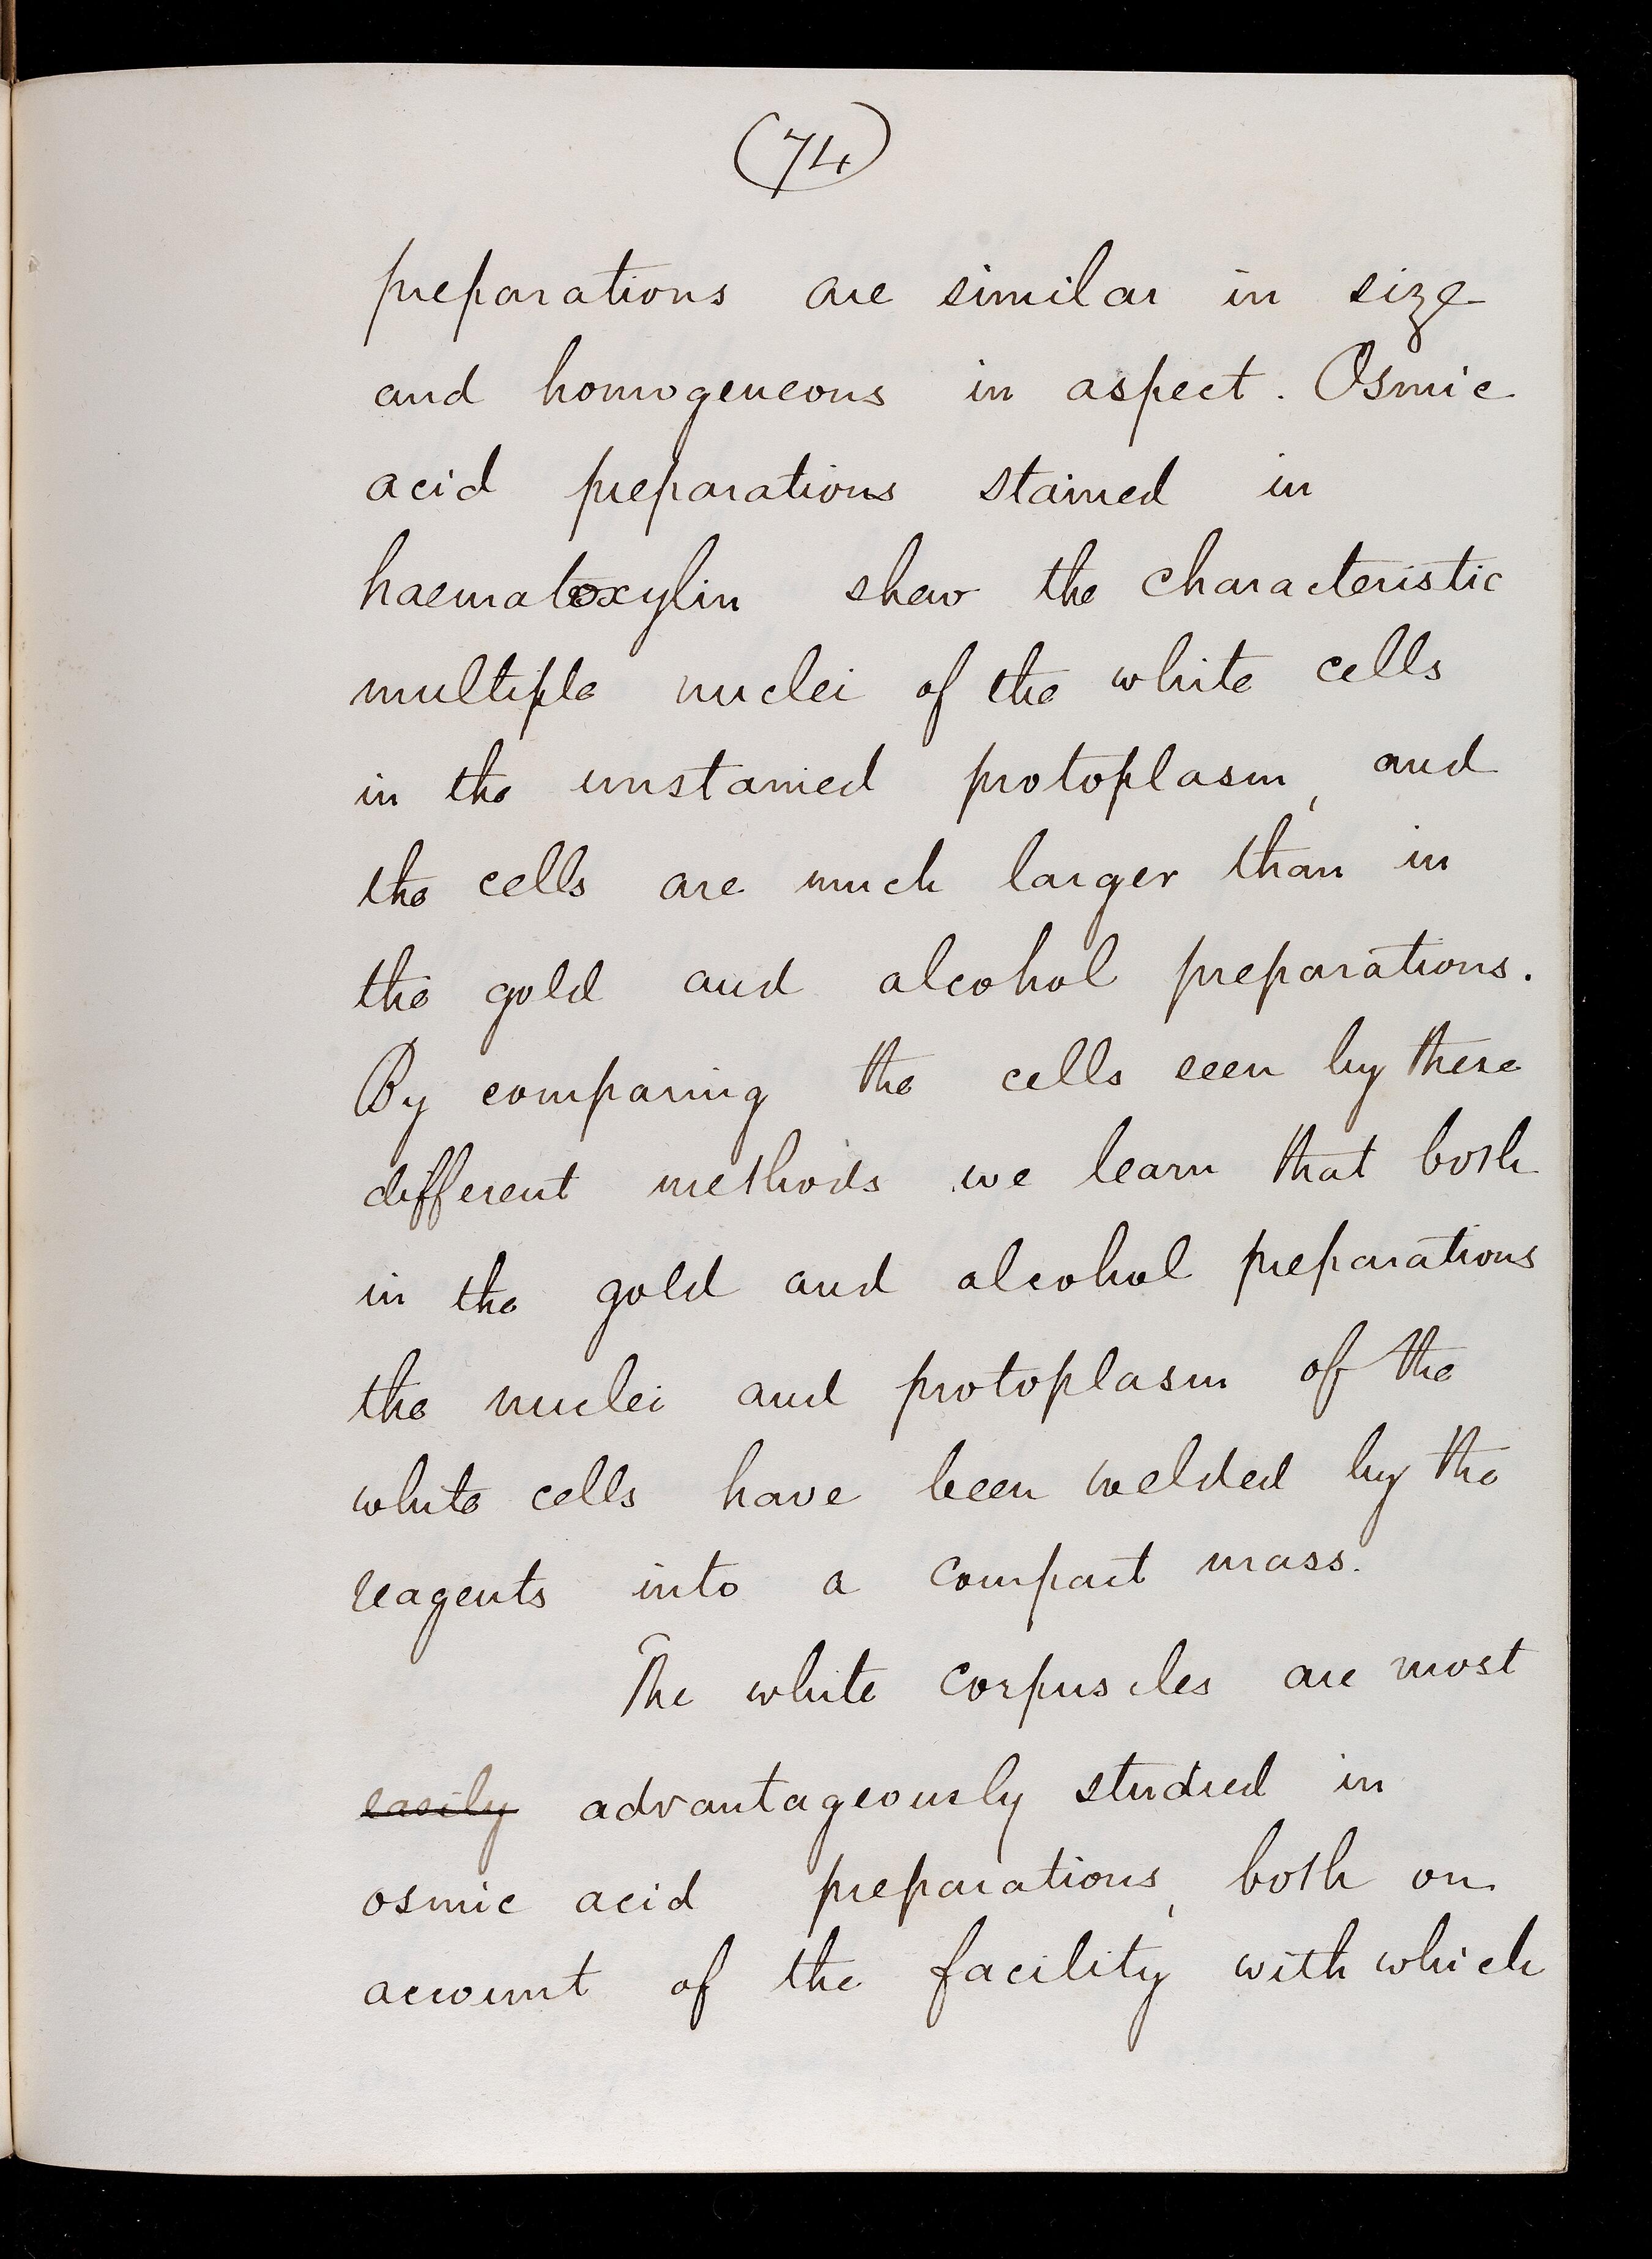 (74)
preparations are similar in size
and homogeneous in aspect. Osmic
acid preparations stained in
haematoxylin shew the characteristic
multiple nuclei of the white cells
in the unstained protoplasm, and
the cells are much larger than in
the gold and alcohol preparations.
By comparing the cells seen by these
different methods we learn that both
in the gold and alcohol preparations
the nuclei and protoplasm of the
white cells have been welded by the
reagents into a compact mass.
The white corpuscles are most
easily advantageously studied in
osmic acid preparations, both on
account of the facility with which